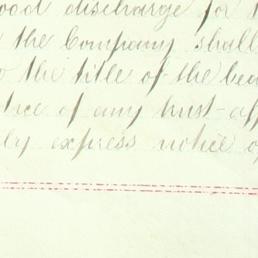 ood discharge for t
the Company shall
o the title of the
ice of any trust-aff
ly express notice of